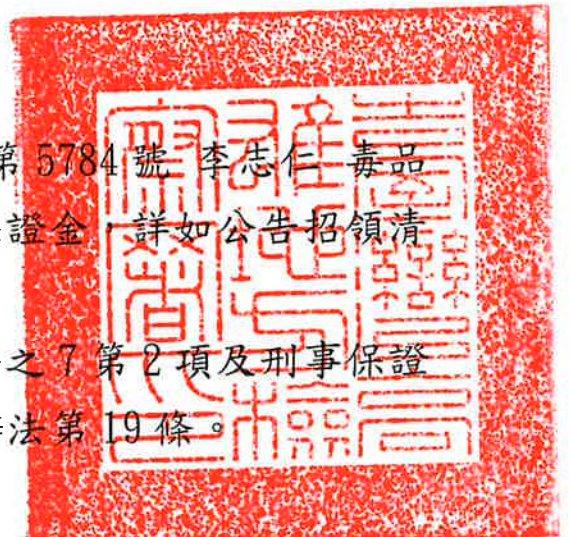 第 5784 號 李志仁 毒品
證金，詳如公告招領清
之 7 第 2 項及刑事保證
法第 19 條。
臺灣高
雄地方檢
察署印